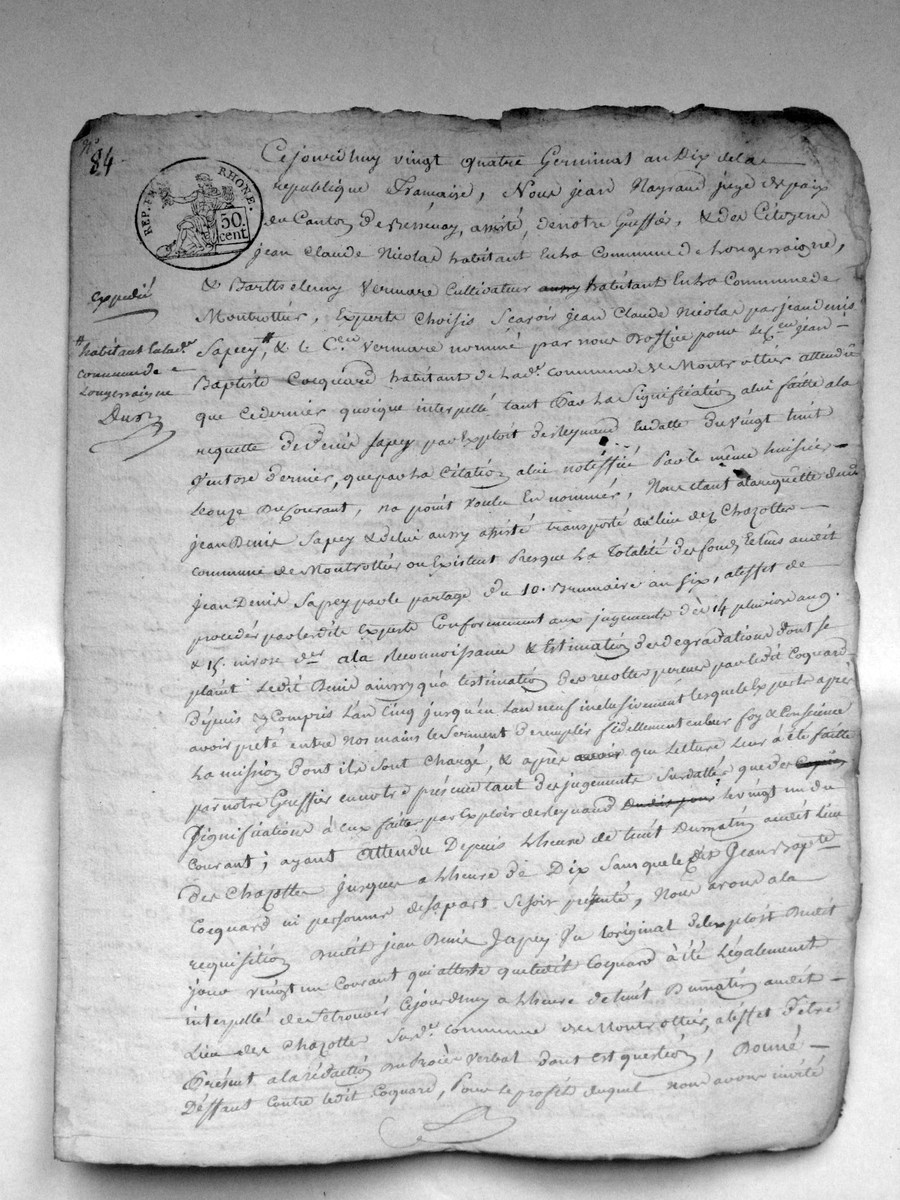 No
84
REP. FRA. RHONE.
50
cent.
Cejourdhuy vingt quatre Germinal an Dix dela
republique francaise, Nous jean Nayrand juge depaix
du Canton de Bessenay, assisté, denotre Greffier, & des Citoyens
jean Claude Nicolas habitant En la Commune de Longessaigne,
& Barthelemy Vermare Cultivateur aussy habitant En la Commune de
Montrottier, Experts Choisis scavoir jean Claude Nicolas par jean denis
Sapey, # & le C.en Vermare nommé par nous Doffice pour le C.en jean
Baptiste Cocquard habitant de lad. commune de Montrottier attendu
que cedernier quoique interpellé tant Par la Signification a lui faitte a la
requette de Denis Sapey par Exploit de Reynaud en datte du vingt huit
Ventose Dernier, que par la Citation a lui notiffiée Par le même huissier
Le onze Du Courant, na point voulu En nommer, Nous étant a la requette dud.
jean Denis Sapey & de lui aussy assisté transporté au lieu des Chazottes
commune de Montrottier ou Existent Presque La Totalité des fonds Echus audit
Jean Denis Sapey par le partage du 10. Brumaire an six, a l'effet de
proceder par lesdits Experts Conformement aux jugements des 14 pluviose an 9.
& 15. nivose der a la Reconnoissance & Estimation des degradations dont se
plaint Ledit Denis ainsy qu'a l'estimation des recoltes percues par ledit Coquard
depuis & Compris L'an Cinq jusqu'en L'an neuf inclusivement lesquels Experts après
avoir preté entre nos mains le Serment de remplir fidellement en leur foy & Conscience
La mission Dont ils sont Chargé, & après avoir que Lecture leur à été faitte
par notre Greffier en notre présence tant des jugements Susdattés que des Copies
Significations à eux faittes par Exploit de Reynaud Dudit jour le vingt un du
Courant; ayant attendu Depuis L'heure de huit Du matin audit Lieu
des Chazottes jusques a L'heure de Dix Sans que le Cit. Jean Bapte
Cocquard ni personne de sa part se soit présenté, Nous avons a la
requisition Dudit jean Denis Sapey Vu l'original de l'exploit Dudit
jour vingt un Courant qui atteste que ledit Cocquard à été Légalement
interpellé de se trouver Cejourdhuy a L'heure de huit Du matin audit
Lieu des Chazottes Sus.d. commune de Montrottier, a l'effet d'être
Présent a la rédaction Du Procès Verbal dont est question, Donné
Deffaut Contre ledit Coquard, Pour le profit duquel nous avons invité
Expedié
# habitant En lade.
commune de
Longessaigne